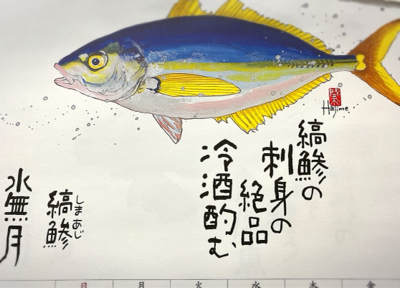 縞鰺の
刺身の
絶品
冷酒酌む
Hajime
しまあじ
縞鰺
水無月
日 月 火 水 木 金